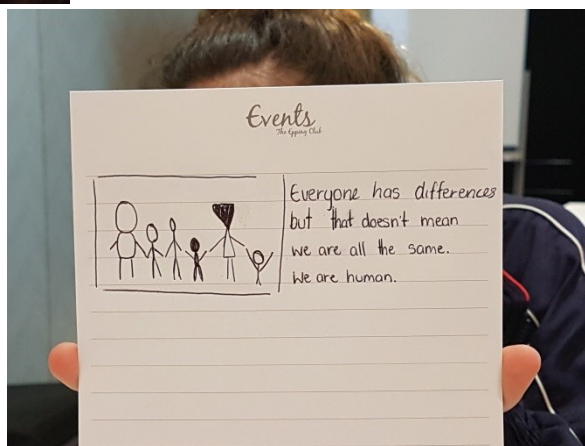 Events
The Epping Club
Everyone has differences
but that doesn't mean
we are all the same.
We are human.